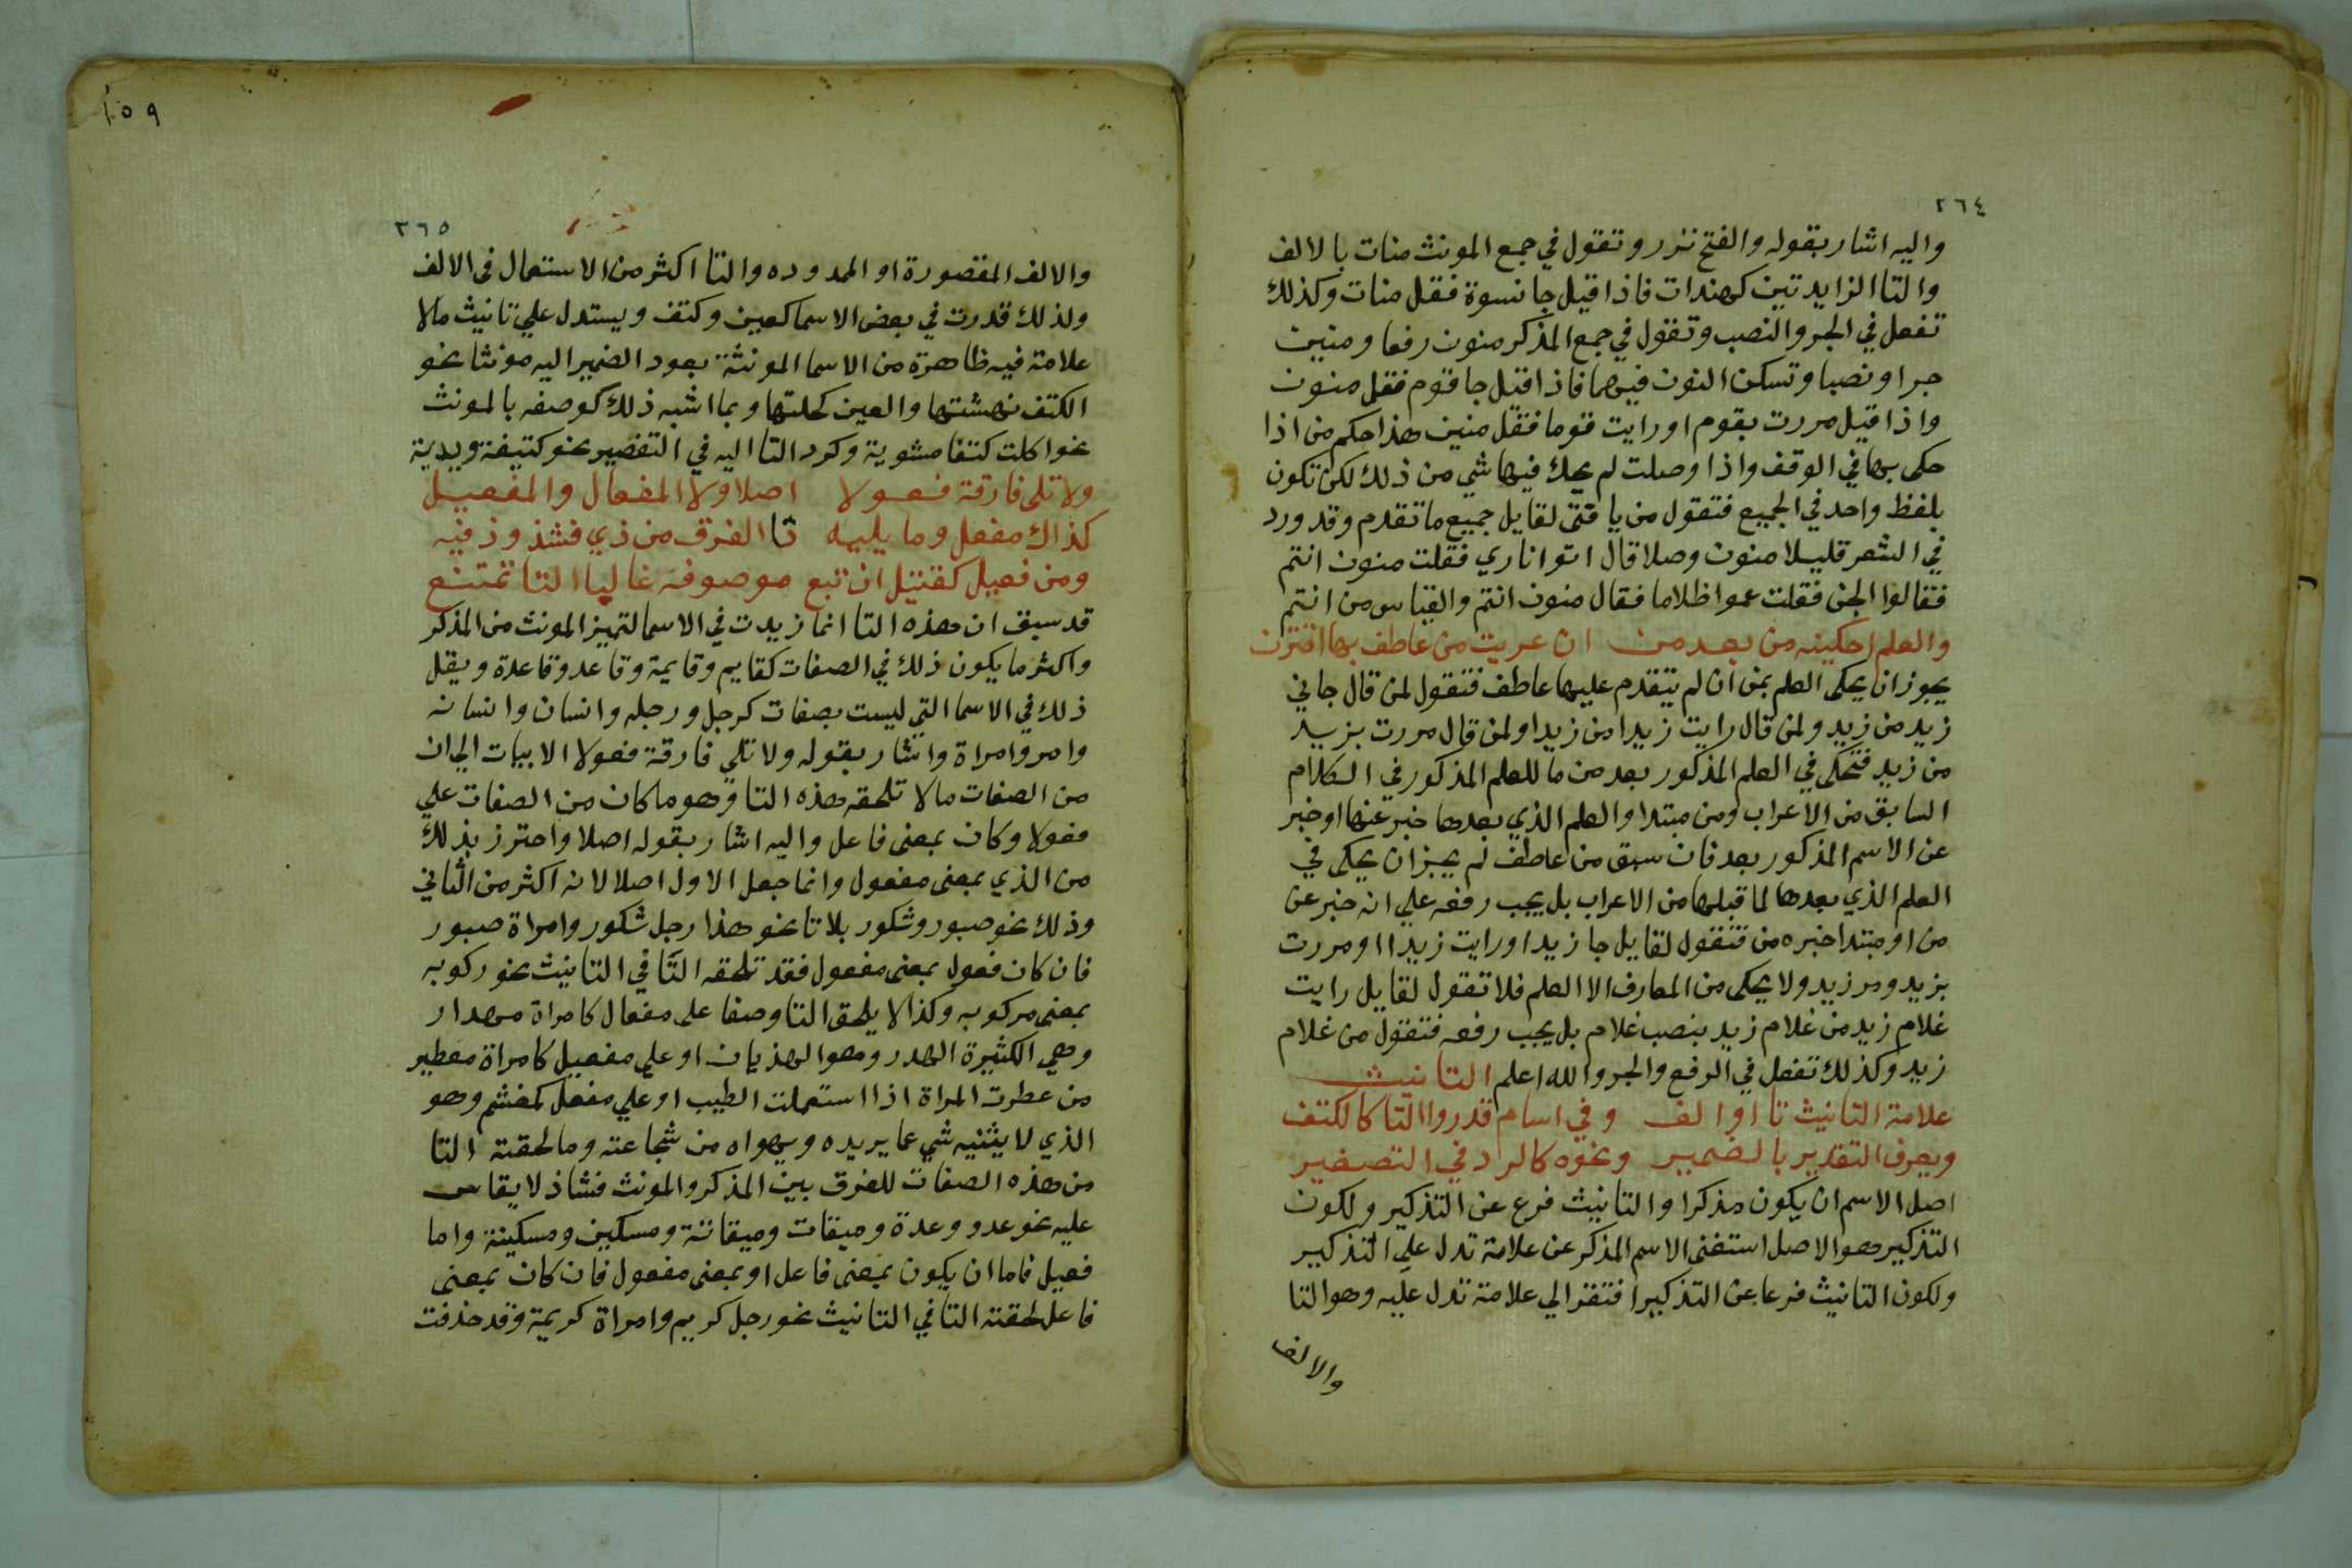 ٢٦٤
واليه اشار بقوله والفتح نزر وتقول في جمع المونث منات بالالف
والتا الزايدتين كهندات فاذا قيل جا نسوة فقل منات وكذلك
تفعل في الجر والنصب وتقول في جمع المذكر منون رفعا ومنين
جرا ونصبا وتسكن النون فيهما فاذا قيل جا قوم فقل منون
واذا قيل مررت بقوم او رايت قوما فقل منين هذا حكم من اذا
حكى بها في الوقف واذا وصلت لم يحك فيها شي من ذلك لكن تكون
بلفظ واحد في الجميع فتقول من يا فتى لقايل جميع ما تقدم وقد ورد
في الشعر قليلا منون وصلا قال اتوا ناري فقلت منون انتم
فقالوا الجن فقلت عموا ظلاما فقال منون انتم والقياس من انتم
والعلم احكينه من بعد من ان عريت من عاطف بها اقترن
يجوز ان يحكى العلم بمن ان لم يتقدم عليها عاطف فتقول لمن قال جاني
زيد من زيد ولمن قال رايت زيدا من زيدا ولمن قال مررت بزيد
من زيد فتحكي في العلم المذكور بعد من ما للعلم المذكور في الكلام
السابق من الاعراب ومن مبتدا والعلم الذي بعدها خبر عنها او خبر
عن الاسم المذكور بعد فان سبق من عاطف لم يجز ان يحكى في
العلم الذي بعدها لما قبلها من الاعراب بل يجب رفعه علي انه خبر عن
من او مبتدا خبره من فتقول لقايل جا زيد او رايت زيدا او مررت
بزيد ومن زيد ولا يحكى من المعارف الا العلم فلا تقول لقايل رايت
غلام زيد من غلام زيد بنصب غلام بل يجب رفعه فتقول من غلام
زيد وكذلك تفعل في الرفع والجر والله اعلم التانيث
علامة التانيث تا او الف وفي اسام قدروا التا كالكتف
ويعرف التقدير بالضمير ونحوه كالرد في التصغير
اصل الاسم ان يكون مذكرا والتانيث فرع عن التذكير ولكون
التذكير هو الاصل استغنى الاسم المذكر عن علامة تدل علي التذكير
ولكون التانيث فرعا عن التذكير افتقر الي علامة تدل عليه وهو التا
والالف
١٥٩
٢٦٥
والالف المقصورة او الممدوده والتا اكثر من الاستعمال في الالف
ولذلك قدرت في بعض الاسما كعين وكتف ويستدل علي تانيث مالا
علامة فيه ظاهرة من الاسما المونثة بعود الضمير اليه مونثا نحو
الكتف نهشتها والعين كحلتها وبما اشبه ذلك كوصفه بالمونث
نحو اكلت كتفا مشوية وكرد التا اليه في التصغير نحو كتيفة ويدية
ولا تلى فارقة فعولا اصلا ولا المفعال والمفعيل
كذاك مفعل وما يليه تا الفرق من ذي فشذوذ فيه
ومن فعيل كقتيل ان تبع موصوفه غالبا التا تمتنع
قد سبق ان هذه التا انما زيدت في الاسما لتميز المونث من المذكر
واكثر ما يكون ذلك في الصفات كقايم وقايمة وقاعد وقاعدة ويقل
ذلك في الاسما التي ليست بصفات كرجل ورجله وانسان وانسانه
وامرو وامراة واشار بقوله ولا تلي فارقة فعولا الابيات الي ان
من الصفات مالا تلحقه هذه التا وهو ما كان من الصفات علي
فعولا وكان بمعنى فاعل واليه اشار بقوله اصلا واحترز بذلك
من الذي بمعنى مفعول وانما جعل الاول اصلا لانه اكثر من الثاني
وذلك نحو صبور وشكور بلا تا نحو هذا رجل شكور وامراة صبور
فان كان فعول بمعنى مفعول فقد تلحقه التا في التانيث نحو ركوبه
بمعنى مركوبه وكذا لا يلحق التا وصفا على مفعال كامراة مهدار
وهي الكثيرة الهدر وهو الهذيان او علي مفعيل كامراة معطير
من عطرت المراة اذا استعملت الطيب او علي مفعل كمغشم وهو
الذي لا يثنيه شي عما يريده ويهواه من شجاعته وما لحقته التا
من هذه الصفات للفرق بين المذكر والمونث فشاذ لا يقاس
عليه نحو عدو وعدة وميقات وميقاتة ومسكين ومسكينة واما
فعيل فاما ان يكون بمعنى فاعل او بمعنى مفعول فان كان بمعنى
فاعل لحقته التا في التانيث نحو رجل كريم وامراة كريمة وقد حذفت